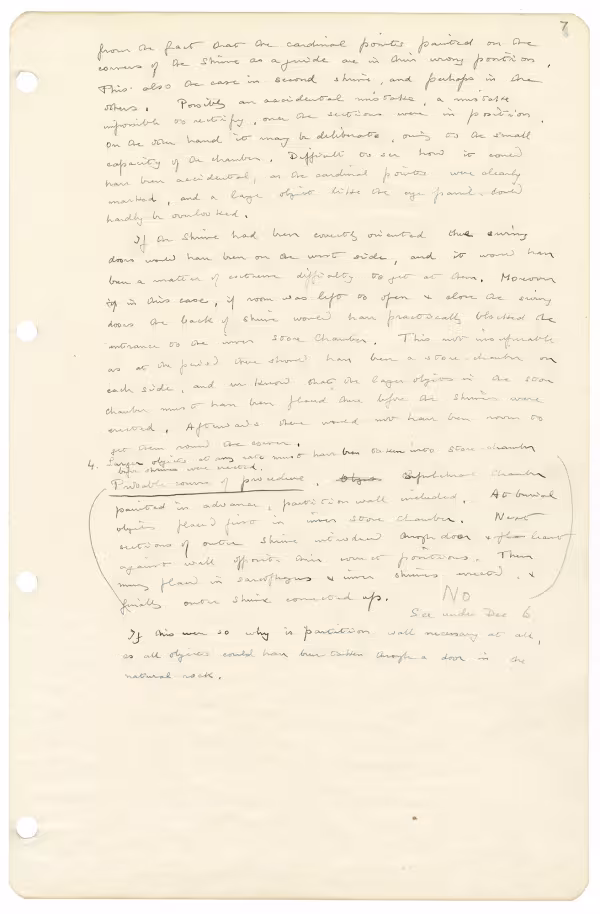 7
from the fact that the cardinal points painted on the
corners of the shrine as a guide are in their wrong position.
This also the case in second shrine, and perhaps in the
others. Possibly an accidental mistake, a mistake
impossible to rectify, once the sections were in position.
On the other hand it may be deliberate, owing to the small
capacity of the chamber. Difficult to see how it could
have been accidental, as the cardinal points were clearly
marked, and a large object like the eye panel could
hardly be overlooked.
If the shrine had been correctly oriented the swing
doors would have been on the west side, and it would have
been a matter of extreme difficulty to get at them. Moreover
in this case, if room was left to open & close the swing
doors the back of shrine would have practically blocked the
entrance to the inner store chamber. This not insuperable
as at the period there should have been a store-chamber on
each side, and we know that the larger objects in the store
chamber must have been placed there before the shrines were
erected. Afterwards there would not have been room to
get them round the corner.
4. Larger objects at any rate must have been taken into store-chamber
before shrines were erected.
Probable course of procedure. Sepulchral chamber
painted in advance, partition wall included. At burial
objects placed first in inner store chamber. Next
sections of outer shrine introduced through door &
against wall opposite their correct positions. Then
mummy placed in sarcophagus & inner shrines erected, &
finally outer shrine connected up. No
See under Dec 6
If this were so why is partition wall necessary at all,
as all objects could have been taken through a door in the
natural rock.